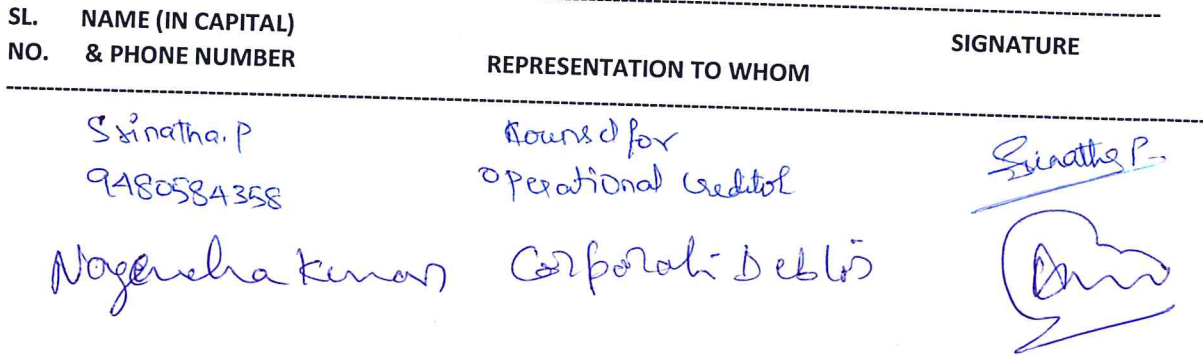 SL. NAME (IN CAPITAL)
NO. & PHONE NUMBER
REPRESENTATION TO WHOM
SIGNATURE
Srinatha. P
Counsel for
9480584358
Operational Creditor
Srinatha P.
Nagendra Kumar
Corporate Debtor